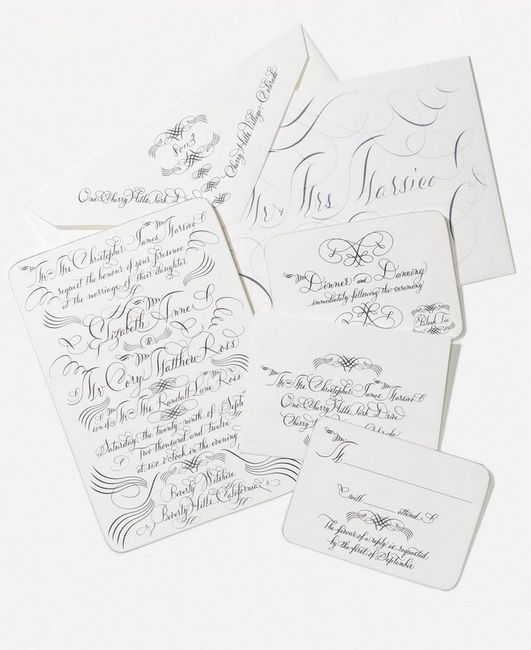 80113
One Cherry Hills Park D
Cherry Hills Village - Colorado
Mr & Mrs Marsico
Mr & Mrs Christopher James Marsico
request the honour of your presence
at the marriage of their daughter
Elizabeth Anne
&
Mr Cory Matthew Ross
son of Mr & Mrs Randall Lane Ross
Saturday, the twenty-ninth of Septe
Two thousand and twelve
at six o'clock in the evening
Beverly Wilshire
Beverly Hills, California
Dinner and Dancing
immediately following the ceremony
Black Tie
Mr & Mrs Christopher James Marsico
One Cherry Hills Park Drive
Cherry Hills Village, Colorado
M
will attend
The favour of a reply is requested
by the first of September